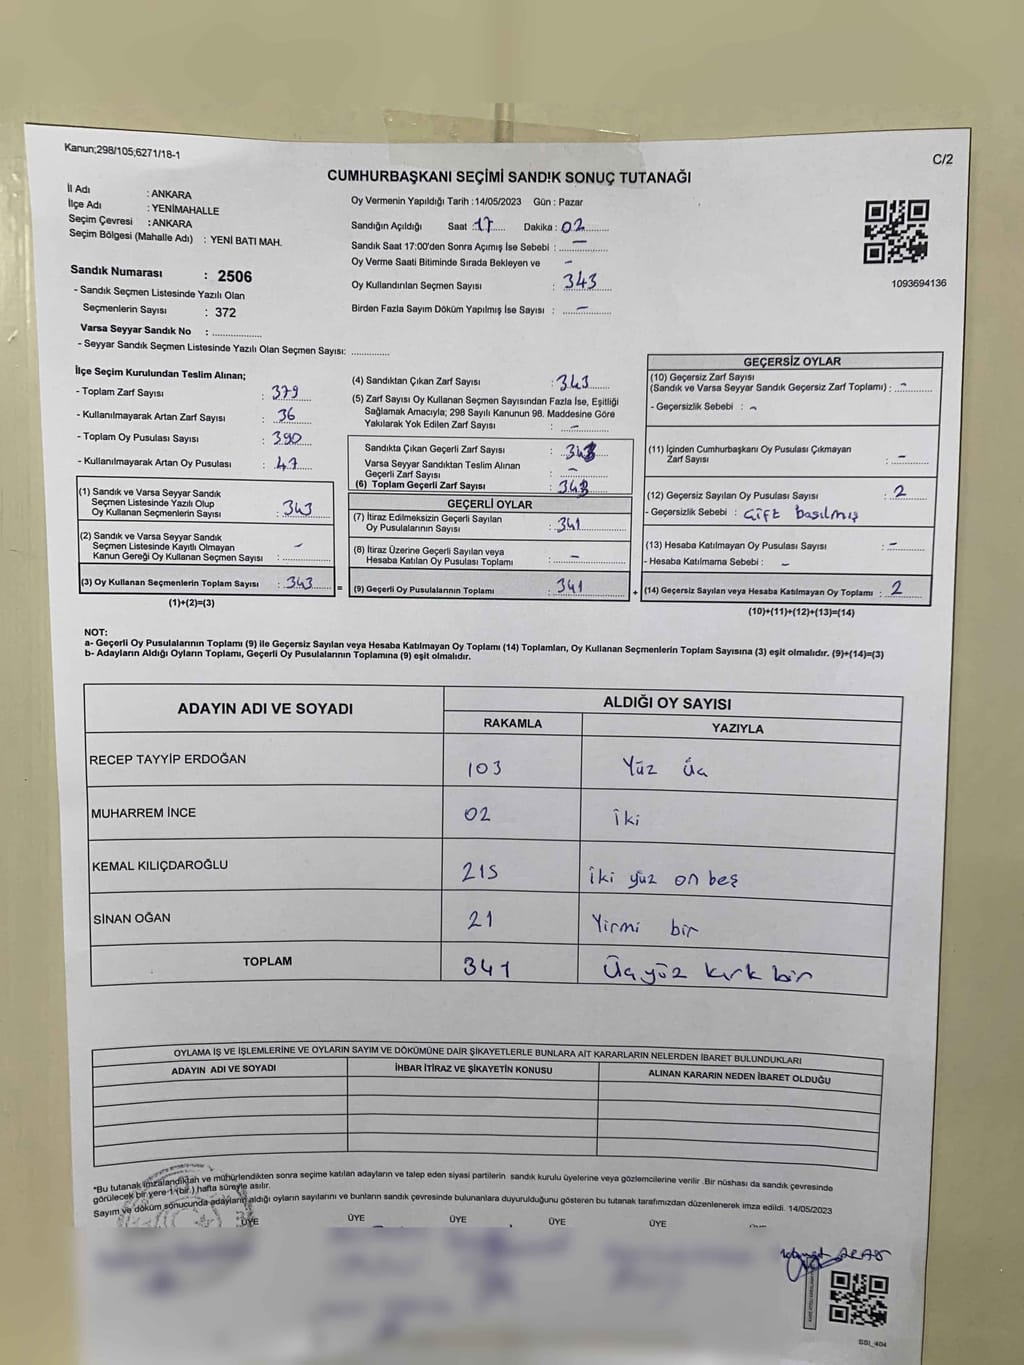 Kanun;298/105;6271/18-1
C/2
CUMHURBAŞKANI SEÇİMİ SANDIK SONUÇ TUTANAĞI
İl Adı : ANKARA
İlçe Adı : YENİMAHALLE
Seçim Çevresi : ANKARA
Seçim Bölgesi (Mahalle Adı) : YENİ BATI MAH.
Sandık Numarası : 2506
- Sandık Seçmen Listesinde Yazılı Olan
Seçmenlerin Sayısı : 372
Varsa Seyyar Sandık No : ..............
- Seyyar Sandık Seçmen Listesinde Yazılı Olan Seçmen Sayısı: ............
Oy Vermenin Yapıldığı Tarih :14/05/2023 Gün : Pazar
Sandığın Açıldığı Saat :17 Dakika : 02
Sandık Saat 17:00'den Sonra Açımış İse Sebebi : -
Oy Verme Saati Bitiminde Sırada Bekleyen ve -
Oy Kullandırılan Seçmen Sayısı : 343
Birden Fazla Sayım Döküm Yapılmış İse Sayısı : -
1093694136
İlçe Seçim Kurulundan Teslim Alınan;
- Toplam Zarf Sayısı : 379
- Kullanılmayarak Artan Zarf Sayısı : 36
- Toplam Oy Pusulası Sayısı : 390
- Kullanılmayarak Artan Oy Pusulası : 47
(1) Sandık ve Varsa Seyyar Sandık
Seçmen Listesinde Yazılı Olup
Oy Kullanan Seçmenlerin Sayısı : 343
(2) Sandık ve Varsa Seyyar Sandık
Seçmen Listesinde Kayıtlı Olmayan
Kanun Gereği Oy Kullanan Seçmen Sayısı : -
(3) Oy Kullanan Seçmenlerin Toplam Sayısı : 343 =
(1)+(2)=(3)
(4) Sandıktan Çıkan Zarf Sayısı : 343
(5) Zarf Sayısı Oy Kullanan Seçmen Sayısından Fazla İse, Eşitliği
Sağlamak Amacıyla; 298 Sayılı Kanunun 98. Maddesine Göre
Yakılarak Yok Edilen Zarf Sayısı : -
Sandıkta Çıkan Geçerli Zarf Sayısı : 343
Varsa Seyyar Sandıktan Teslim Alınan
Geçerli Zarf Sayısı : -
(6) Toplam Geçerli Zarf Sayısı : 343
GEÇERLİ OYLAR
(7) İtiraz Edilmeksizin Geçerli Sayılan
Oy Pusulalarının Sayısı : 341
(8) İtiraz Üzerine Geçerli Sayılan veya
Hesaba Katılan Oy Pusulası Toplamı : -
(9) Geçerli Oy Pusulalarının Toplamı : 341 +
GEÇERSİZ OYLAR
(10) Geçersiz Zarf Sayısı
(Sandık ve Varsa Seyyar Sandık Geçersiz Zarf Toplamı) : -
- Geçersizlik Sebebi : -
(11) İçinden Cumhurbaşkanı Oy Pusulası Çıkmayan
Zarf Sayısı : -
(12) Geçersiz Sayılan Oy Pusulası Sayısı : 2
- Geçersizlik Sebebi : Çift basılmış
(13) Hesaba Katılmayan Oy Pusulası Sayısı : -
- Hesaba Katılmama Sebebi : -
(14) Geçersiz Sayılan veya Hesaba Katılmayan Oy Toplamı : 2
(10)+(11)+(12)+(13)=(14)
NOT:
a- Geçerli Oy Pusulalarının Toplamı (9) ile Geçersiz Sayılan veya Hesaba Katılmayan Oy Toplamı (14) Toplamları, Oy Kullanan Seçmenlerin Toplam Sayısına (3) eşit olmalıdır. (9)+(14)=(3)
b- Adayların Aldığı Oyların Toplamı, Geçerli Oy Pusulalarının Toplamına (9) eşit olmalıdır.
ADAYIN ADI VE SOYADI ALDIĞI OY SAYISI
RAKAMLA YAZIYLA
RECEP TAYYİP ERDOĞAN 103 Yüz üç
MUHARREM İNCE 02 İki
KEMAL KILIÇDAROĞLU 215 İki yüz on beş
SİNAN OĞAN 21 Yirmi bir
TOPLAM 341 Üçyüz kırk bir
OYLAMA İŞ VE İŞLEMLERİNE VE OYLARIN SAYIM VE DÖKÜMÜNE DAİR ŞİKAYETLERLE BUNLARA AİT KARARLARIN NELERDEN İBARET BULUNDUKLARI
ADAYIN ADI VE SOYADI İHBAR İTİRAZ VE ŞİKAYETİN KONUSU ALINAN KARARIN NEDEN İBARET OLDUĞU
*Bu tutanak imzalandıktan ve mühürlendikten sonra seçime katılan adayların ve talep eden siyasi partilerin sandık kurulu üyelerine veya gözlemcilerine verilir .Bir nüshası da sandık çevresinde
görülecek bir yere 1 (bir.) hafta süreyle asılır.
Sayım ve döküm sonucunda adayların aldığı oyların sayılarını ve bunların sandık çevresinde bulunanlara duyurulduğunu gösteren bu tutanak tarafımızdan düzenlenerek imza edildi. 14/05/2023
ÜYE ÜYE ÜYE ÜYE ÜYE